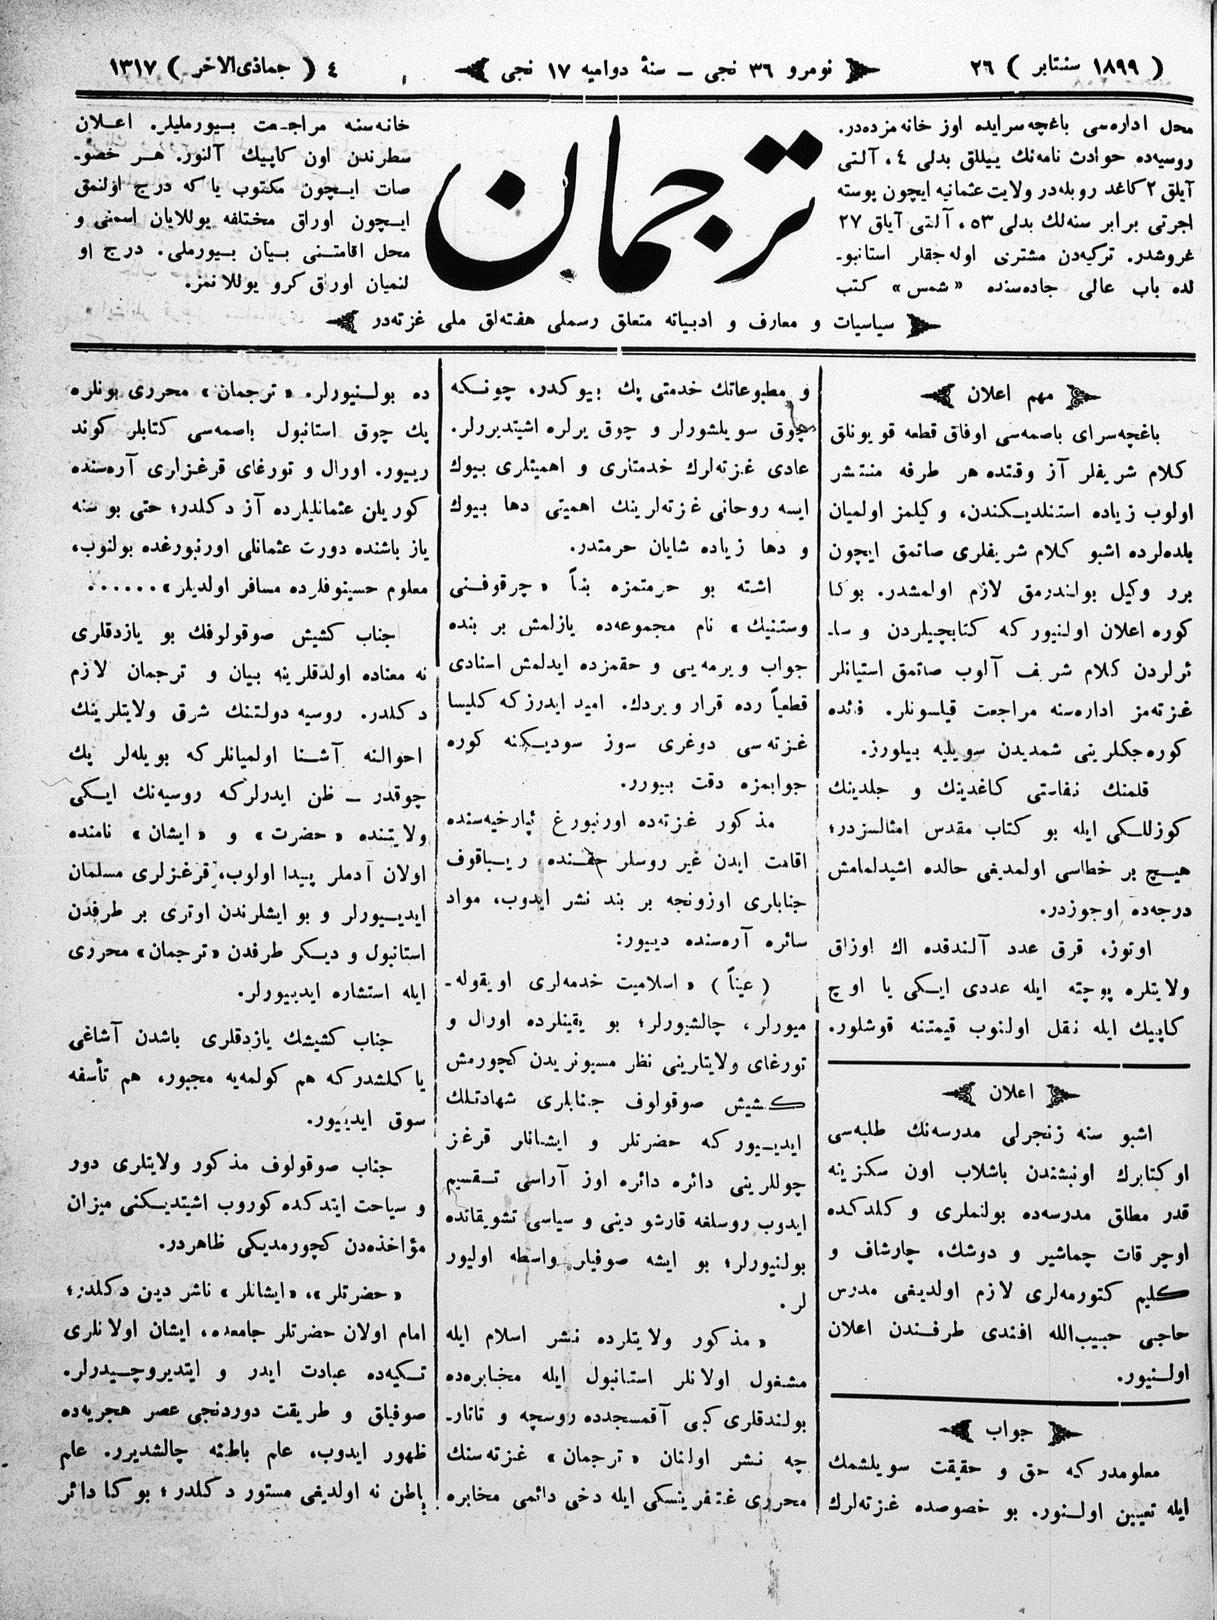 ( ١٨٩٩ سنتابر ) ٢٦
نومرو ٣٦ نجی ــ سنهٔ دوامیه ١٧ نجی
٤ ( جماذی‌الاخر ) ١٣١٧
محل اداره‌سی باغچه‌سرایده اوز خانه مزده‌در.
روسیه‌ده حوادث نامه‌نك ییللق بدلی ٤، آلتی
آیلق ٢ کاغد روبله‌در ولایت عثمانیه ایچون پوسته
اجرتی برابر سنه‌لك بدلی ٥٣، آلتی آیلق ٢٧
غروشدر. ترکیه‌دن مشتری اوله‌جقلر استانبو-
لده باب عالی جاده‌سنده «شمس» کتب
ترجمان
خانه‌سنه مراجعت بیورملیلر. اعلان
سطرندن اون کاپیك آلنور. هر خصو-
صات ایچون مکتوب یا که درج اولنمق
ایچون اوراق مختلفه یوللایان اسمنی و
محل اقامتنی بیان بیورملی. درج او
لنمیان اوراق کرو یوللانمز.
سیاسیات و معارف و ادبیاته متعلق رسملی هفته‌لق ملی غزته‌در
مهم اعلان
باغچه‌سرای باصمه‌سی اوفاق قطعه قویونلق
کلام شریفلر آز وقتده هر طرفه منتشر
اولوب زیاده استنلدیکندن، وکیلمز اولمیان
بلده‌لرده اشبو کلام شریفلری صاتمق ایچون
برر وکیل بولندرمق لازم اولمشدر. بوکا
کوره اعلان اولنیور که کتابچیلردن و سا-
ئرلردن کلام شریف آلوب صاتمق استیانلر
غزته‌مز اداره‌سنه مراجعت قیلسونلر. فائده
کوره‌جکلرینی شمدیدن سویلیه بیلورز.
قلمنك نفاستی کاغدینك و جلدینك
کوزللکی ایله بو کتاب مقدس امثالسزدر؛
هیچ بر خطاسی اولمدیغی حالده اشیدلمامش
درجه‌ده اوجوزدر.
اوتوز، قرق عدد آلندقده اك اوزاق
ولایتلره پوچته ایله عددی ایکی یا اوچ
کاپیك ایله نقل اولنوب قیمتنه قوشلور.
اعلان
اشبو سنه زنجرلی مدرسه‌نك طلبه‌سی
اوکتابرك اونبشندن باشلاب اون سکزینه
قدر مطلق مدرسه‌ده بولنملری و کلدکده
اوچر قات چماشیر و دوشك، چارشاف و
کلیم کتورمه‌لری لازم اولدیغی مدرس
حاجی حبیب‌الله افندی طرفندن اعلان
اولنیور.
جواب
معلومدر که حق و حقیقت سویلشمك
ایله تعیین اولنور. بو خصوصده غزته‌لرك
و مطبوعاتك خدمتی پك بیوکدر، چونکه
چوق سویلشورلر و چوق یرلره اشیتدیررلر.
عادی غزته‌لرك خدمتلری و اهمیتلری بیوك
ایسه روحانی غزته‌لرینك اهمیتی دها بیوك
و دها زیاده شایان حرمتدر.
اشته بو حرمتمزه بناً «چرقوفنی
وستنیك» نام مجموعه‌ده یازلمش بر بنده
جواب ویرمه‌یی و حقمزده ایدلمش اسنادی
قطعیاً رده قرار ویردك. امید ایدرز که کلیسا
غزته‌سی دوغری سوز سودیکنه کوره
جوابمزه دقت بیورر.
مذکور غزته‌ده اورنبورغ ئپارخیه‌سنده
اقامت ایدن غیر روسلر حقنده ریباقوف
جنابلری اوزونجه بر بند نشر ایدوب، مواد
سائره آره‌سنده دییور:
(عیناً) «اسلامیت خدمه‌لری اویقوله-
میورلر، چالشیورلر؛ بو یقینلرده اورال و
تورغای ولایتلرینی نظر مسیونریدن کچورمش
کشیش صوقولوف جنابلری شهادتلك
ایدییور که حضرتلر و ایشانلر قرغز
چوللرینی دائره دائره اوز آراسی تقسیم
ایدوب روسلغه قارشو دینی و سیاسی تشویقاتده
بولنیورلر؛ بو ایشه صوفیلر واسطه اولیور
لر.
«مذکور ولایتلرده نشر اسلام ایله
مشغول اولانلر استانبول ایله مخابره‌ده
بولندقلری کبی آقمسجدده روسچه و تاتار-
چه نشر اولنان «ترجمان» غزته‌سنك
محرری غتفرینسکی ایله دخی دائمی مخابره
ده بولنیورلر. «ترجمان» محرری بونلره
پك چوق استانبول باصمه‌سی کتابلر کوند
رییور. اورال و تورغای قرغزلری آره‌سنده
کوریلن عثمانلیلرده آز دکلدر؛ حتی بو سنه
یاز باشنده دورت عثمانلی اورنبورغده بولنوب،
معلوم حسینوفلرده مسافر اولدیلر» ......
جناب کشیش صوقولوفك بو یازدقلری
نه معناده اولدقلرینه بیان و ترجمان لازم
دکلدر. روسیه دولتنك شرق ولایتلرینك
احوالنه آشنا اولمیانلر که بویله‌لر پك
چوقدر ــ ظن ایدرلر که روسیه‌نك ایکی
ولایتنده «حضرت» و «ایشان» نامنده
اولان آدملر پیدا اولوب، قرغزلری مسلمان
ایدییورلر و بو ایشلرندن اوتری بر طرفدن
استانبول و دیکر طرفدن «ترجمان» محرری
ایله استشاره ایدییورلر.
جناب کشیشك یازدقلری باشدن آشاغی
یاکلشدر که هم کولمه‌یه مجبور، هم تأسفه
سوق ایدییور.
جناب صوقولوف مذکور ولایتلری دور
و سیاحت ایتدکده کوروب اشیتدیکنی میزان
مؤاخذه‌دن کچورمدیکی ظاهردر.
«حضرتلر»، «ایشانلر» ناشر دین دکلدر؛
امام اولان حضرتلر جامعده، ایشان اولانلری
تکیه‌ده عبادت ایدر و ایتدیروچیدرلر.
صوفیلق و طریقت دوردنجی عصر هجریه‌ده
ظهور ایدوب، علم باطنه چالشدیرر. علم
باطن نه اولدیغی مستور دکلدر؛ بوکا دائر